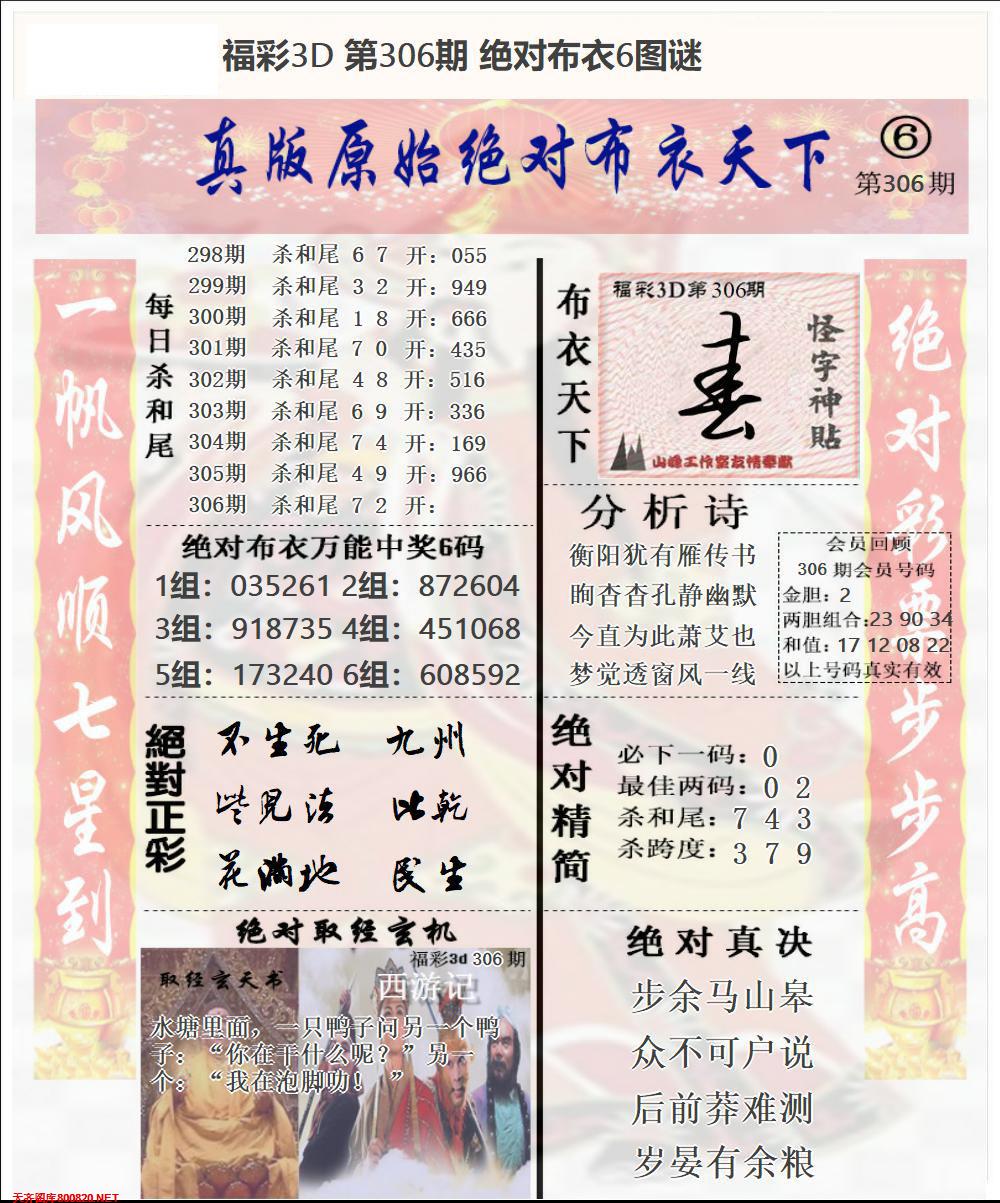 福彩3D 第306期 绝对布衣6图谜
真版原始绝对布衣天下
6
第306期
一帆风顺七星到
绝对彩票步步高
每日杀和尾
298期 杀和尾 6 7 开：055
299期 杀和尾 3 2 开：949
300期 杀和尾 1 8 开：666
301期 杀和尾 7 0 开：435
302期 杀和尾 4 8 开：516
303期 杀和尾 6 9 开：336
304期 杀和尾 7 4 开：169
305期 杀和尾 4 9 开：966
306期 杀和尾 7 2 开：
绝对布衣万能中奖6码
1组：035261 2组：872604
3组：918735 4组：451068
5组：173240 6组：608592
絕對正彩
不生死 九州
些見法 比乾
花满地 民生
绝对取经玄机
福彩3d 306期
取经玄天书
西游记
水塘里面，一只鸭子问另一个鸭
子：“你在干什么呢？”另一
个：“我在泡脚叻！ ”
布衣天下
福彩3D第306期
怪字神貼
山峰工作室友情奉献
分析诗
衡阳犹有雁传书
眴杳杳孔静幽默
今直为此萧艾也
梦觉透窗风一线
会员回顾
306 期会员号码
金胆：2
两胆组合:23 90 34
和值：17 12 08 22
以上号码真实有效
绝对精简
必下一码：0
最佳两码：0 2
杀和尾：7 4 3
杀跨度：3 7 9
绝对真决
步余马山皋
众不可户说
后前莽难测
岁晏有余粮
天齐图库800820.NET